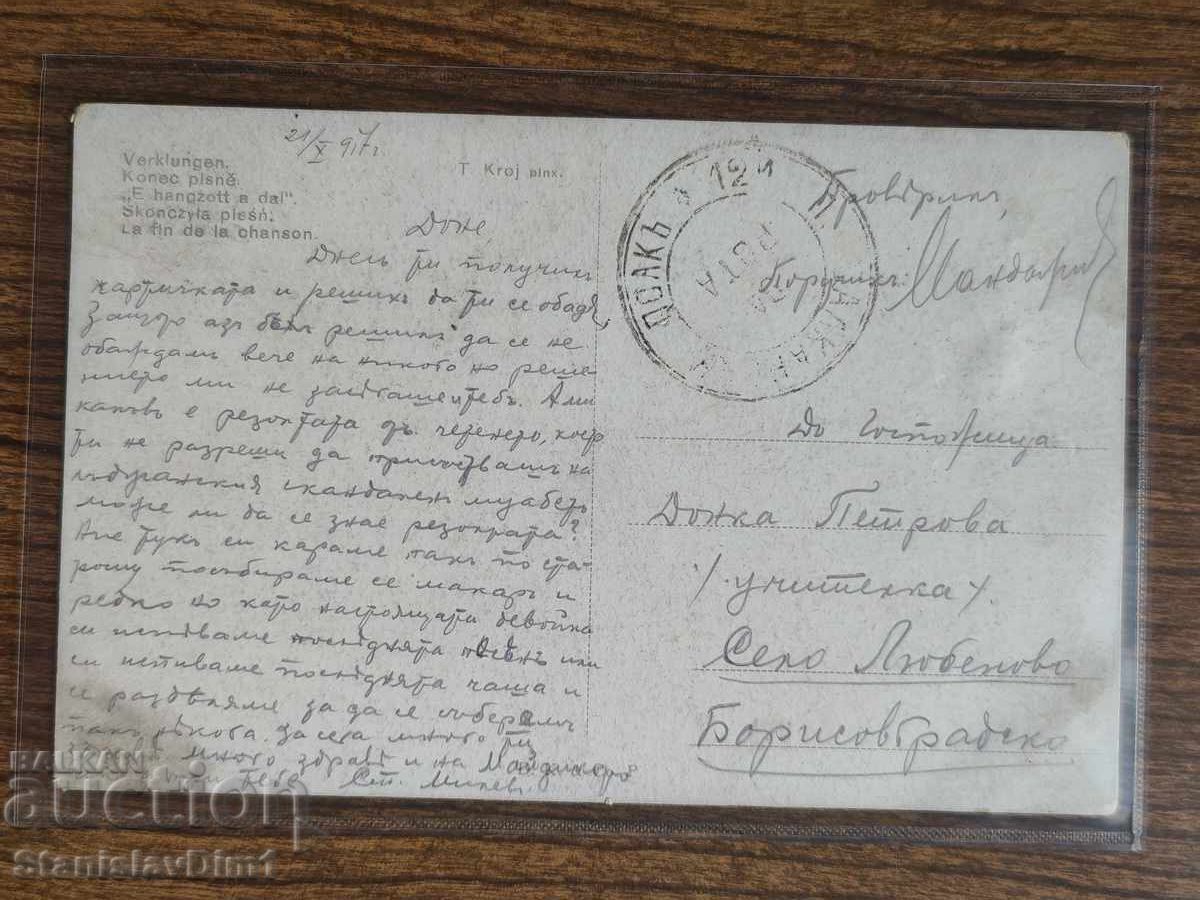 21/X 917 г.
Verklungen.
Konec písně.
„E hangzott a dal“.
Skonczyła pieśń.
La fin de la chanson.
T Kroj pinx.
Доне,
Днесъ ти получихъ
картичката и решихъ да ти се обадя,
Защото азъ бяхъ решилъ да се не
обаждамъ вече на никого но реше
нието ми не засягаше и тебъ. Ами
какъвъ е резолтата отъ четенето, което
ти не разреши да присѫтвашъ на
скандаленъ мухабетъ
може ли да се знае резолтата?
Ние тукъ си караме такъ по ста
рому посъбираме се макаръ и
редко но като настоящата девойка
си изпѣваме последнята песень или
си изпиваме последнята чаша и
се раздѣляме за да се съберемъ
пакъ нѣкога. За сега много
много здраве и на
тебе Ст. Милевъ
ПСАКЪ 12
Провѣрилъ,
Поручикъ:
До Госпожица
Донка Петрова
/ учителка /.
Село Любеново
Борисовградско
BALKAN
auction
StanislavDim1